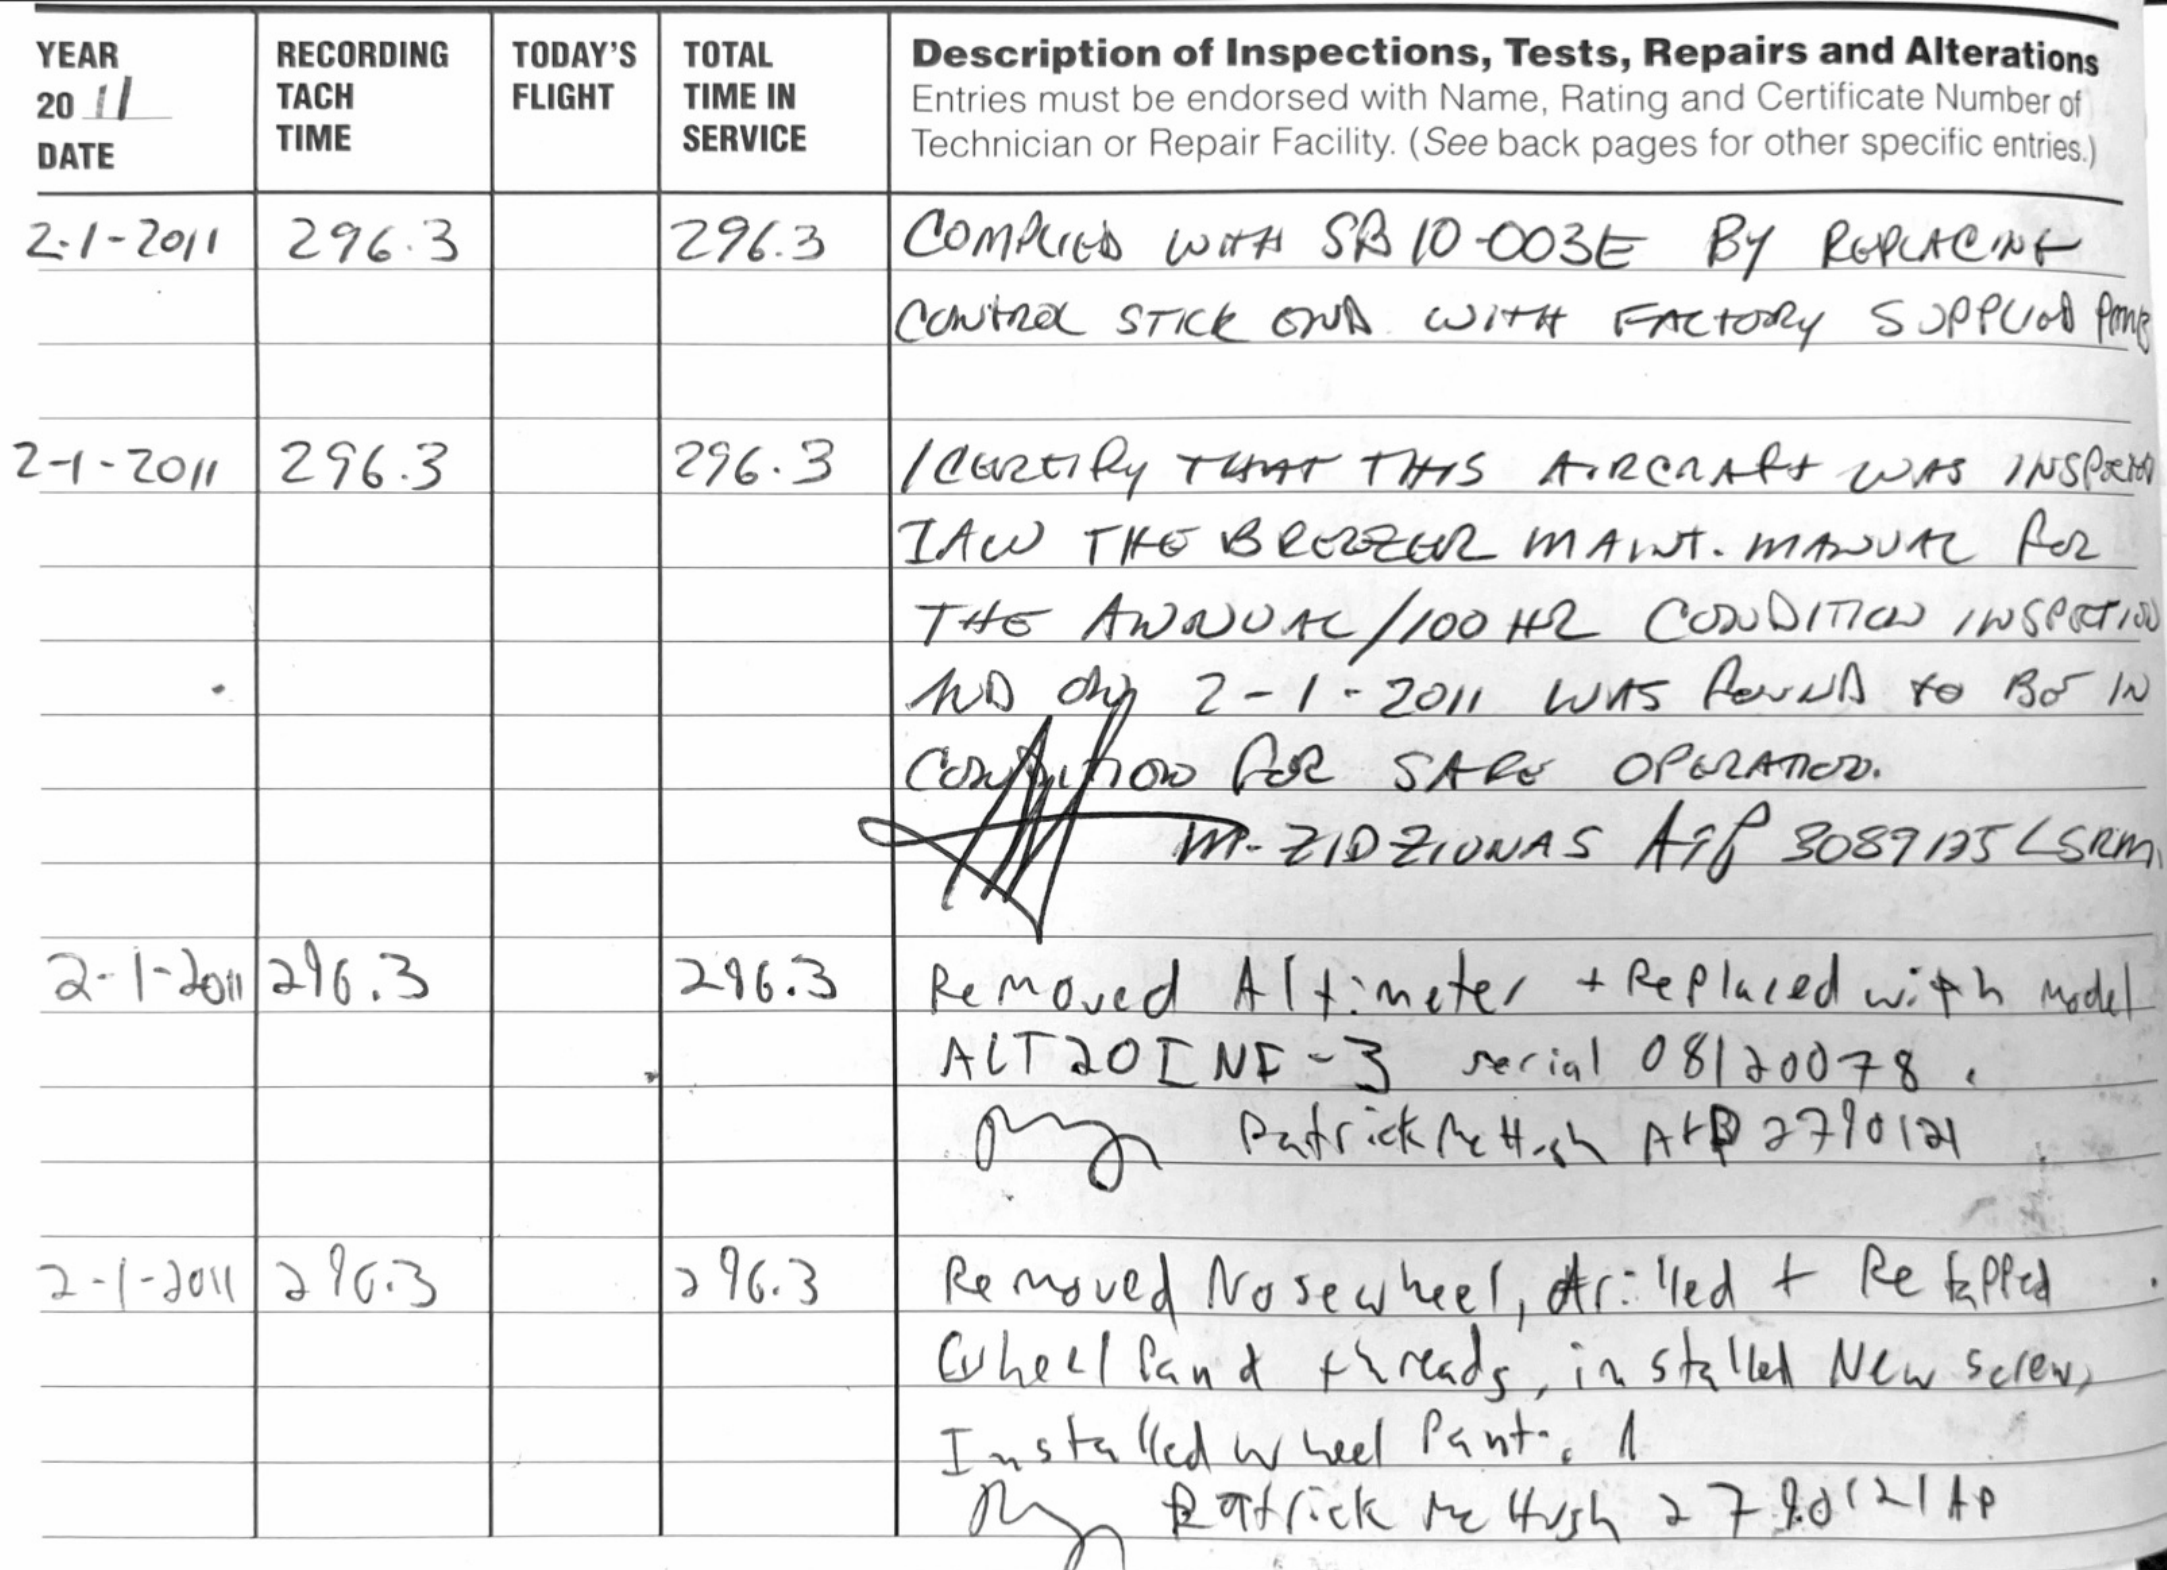 YEAR
20 11
DATE
RECORDING
TACH
TIME
TODAY'S
FLIGHT
TOTAL
TIME IN
SERVICE
Description of Inspections, Tests, Repairs and Alterations
Entries must be endorsed with Name, Rating and Certificate Number of
Technician or Repair Facility. (See back pages for other specific entries.)
2-1-2011 296.3 296.3 COMPLIED WITH SB 10-003E BY REPLACING
CONTROL STICK END WITH FACTORY SUPPLIED
2-1-2011 296.3 296.3 I CERTIFY THAT THIS AIRCRAFT WAS INSPECTED
IAW THE BREEZER MAINT. MANUAL FOR
THE ANNUAL/100 HR CONDITION INSPECTION
AND ON 2-1-2011 WAS FOUND TO BE IN
CONDITION FOR SAFE OPERATION.
M. ZIDZIUNAS A&P 3089135 LSRM
2-1-2011 296.3 296.3 Removed Altimeter + Replaced with Model
ALT20INF-3 serial 08120078.
Patrick McHugh A+P 2790121
2-1-2011 296.3 296.3 Removed Nosewheel, drilled + Retapped
Wheel Pant threads, installed New screw,
Installed wheel Pant.
Patrick McHugh 2790121 AP